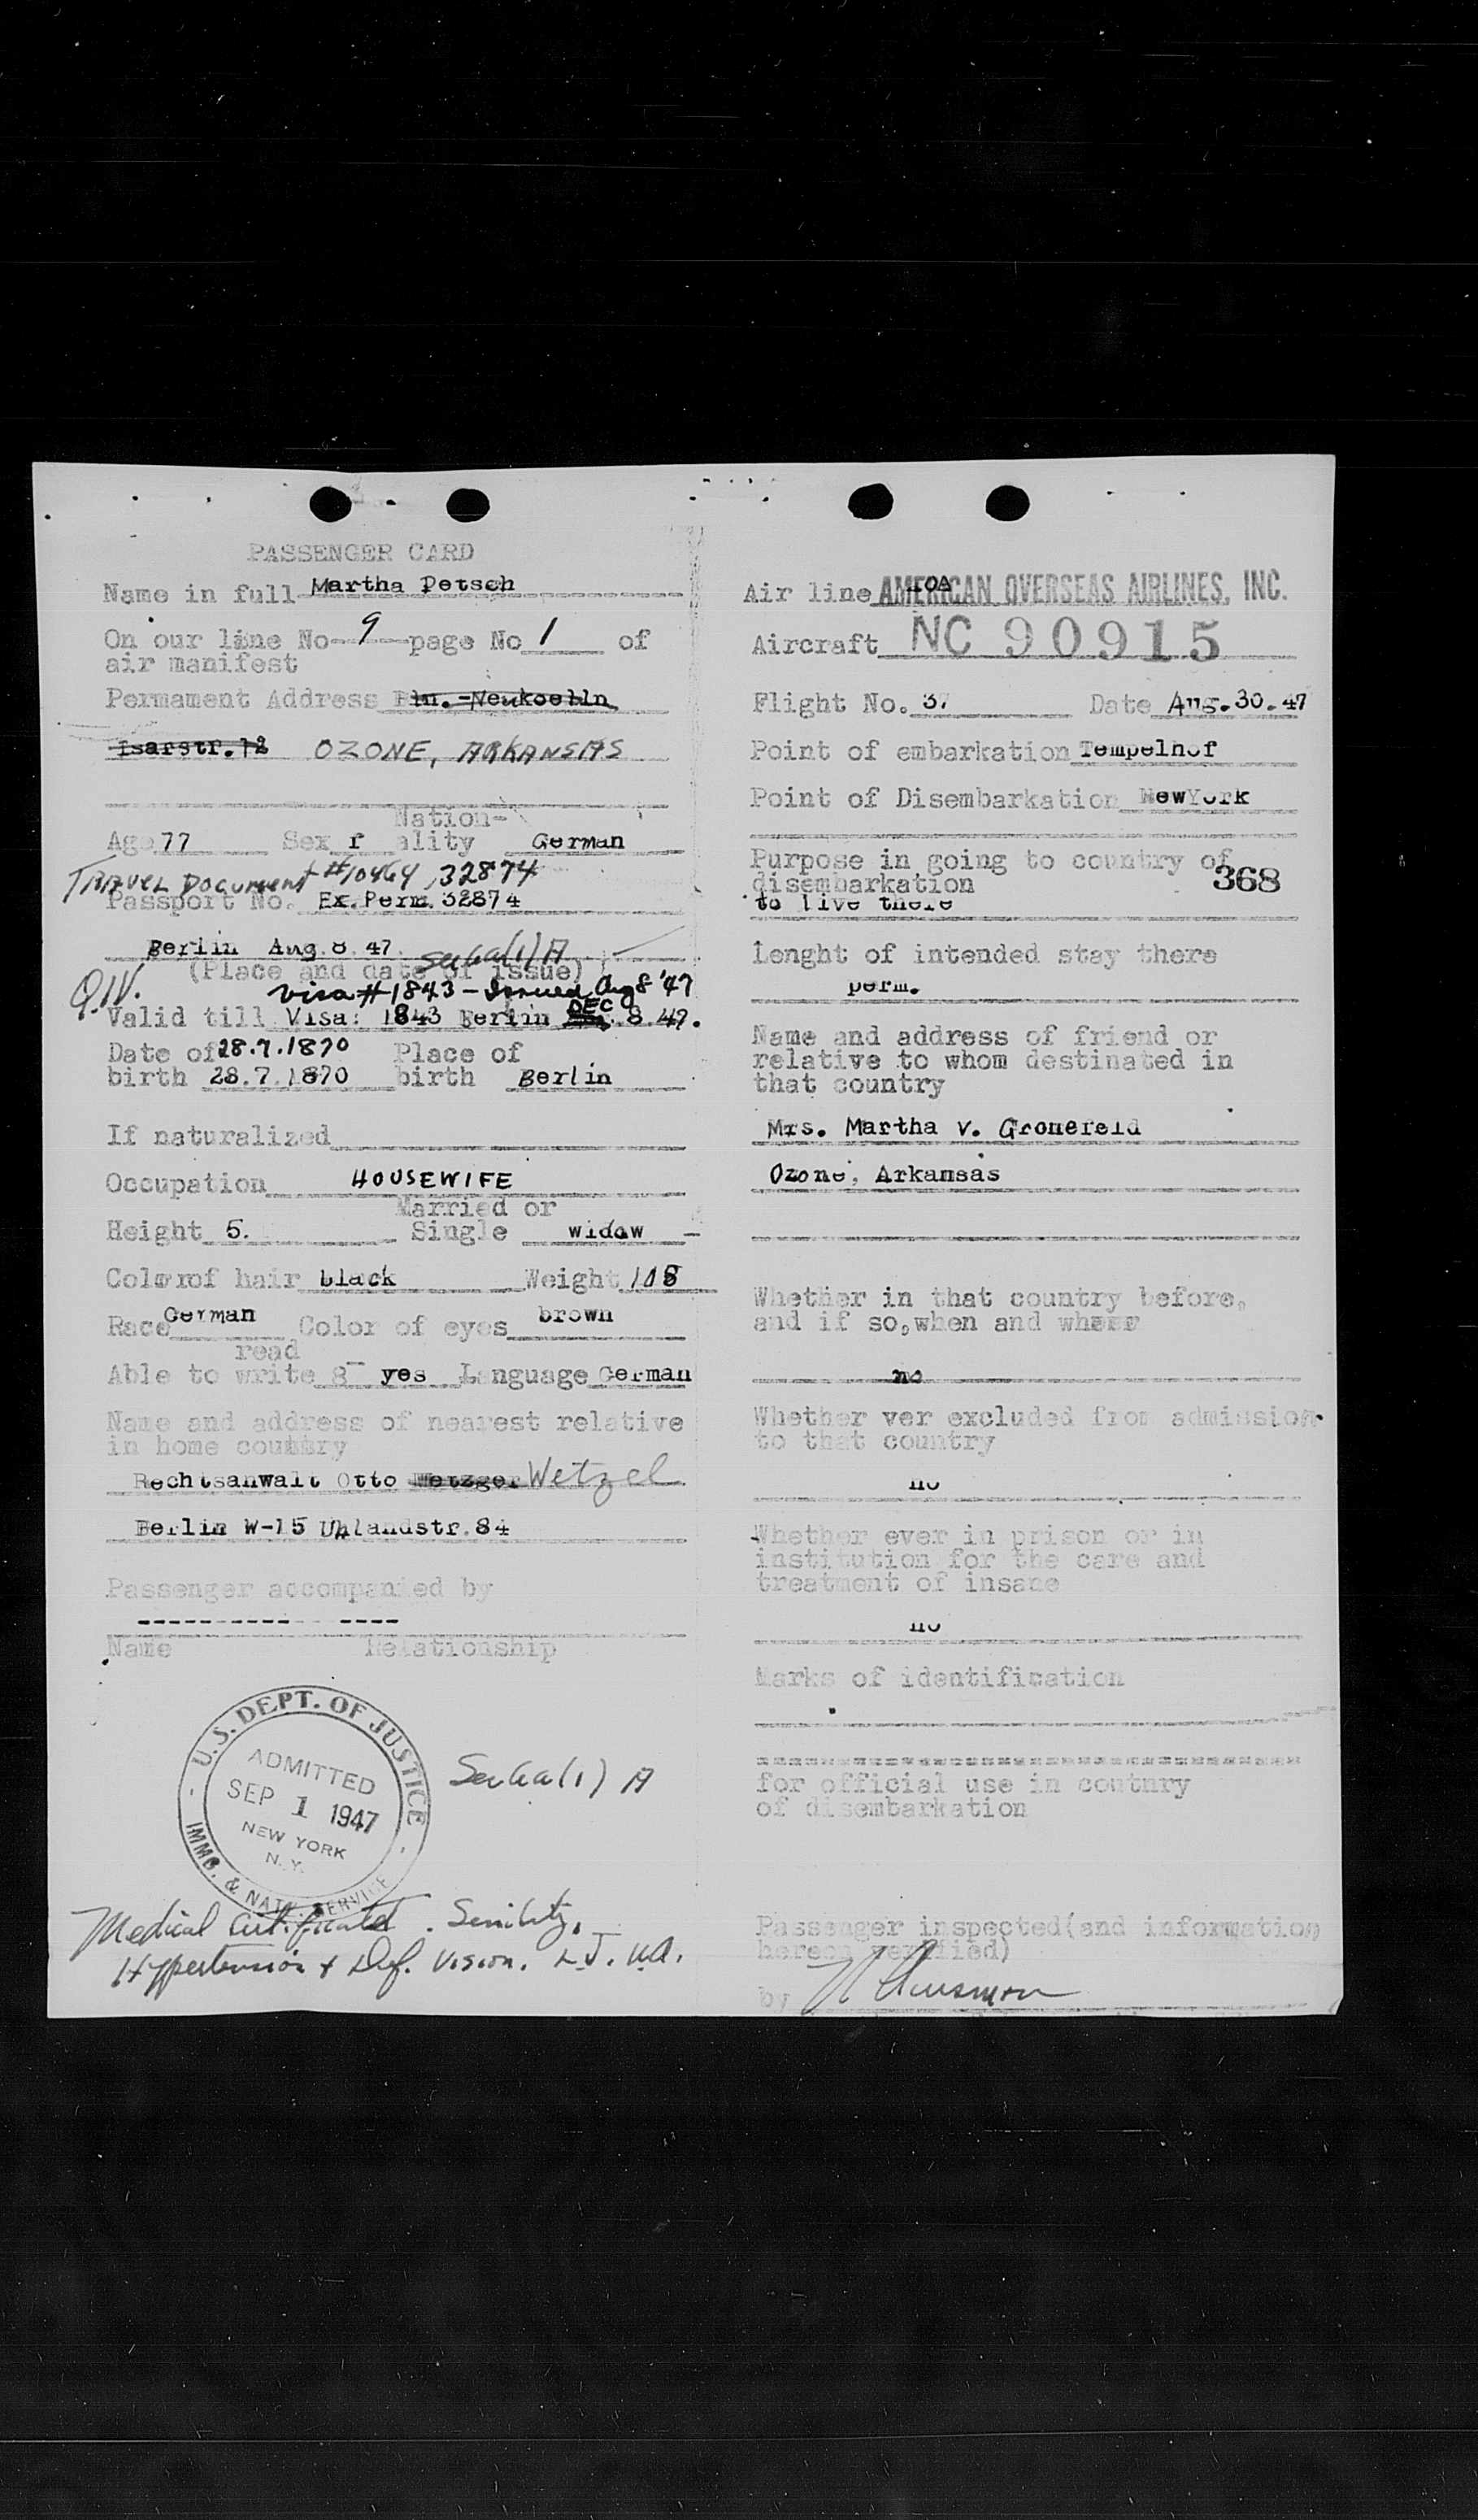 PASSENGER CARD
Name in full Martha Petsch
On our line No 9 page No 1 of
air manifest
Permament Address Bln.-Neukoelln
Isarstr.12 OZONE, ARKANSAS
Nation-
Age 77 Sex f ality German
TRAVEL DOCUMENT #10464, 32874
Passport No. Ex.Perm.32874
Berlin Aug.8.47. Sec 6a(1)A
(Place and date of issue)
Q.I.V. Visa #1843 - Issued Aug 8 '47
DEC
Valid till Visa: 1843 Berlin 8.47.
Date of 28.7.1870 Place of
birth 28.7.1870 birth Berlin
If naturalized
Occupation HOUSEWIFE
Married or
Height 5. Single widow
Color of hair black Weight 108
Race German Color of eyes brown
read
Able to write & yes Language German
Name and address of nearest relative
in home country
Rechtsanwalt Otto Metzger Wetzel
Berlin W-15 Uhlandstr.84
Passenger accompanied by
Name Relationship
U.S. DEPT. OF JUSTICE
ADMITTED
SEP 1 1947
NEW YORK
N.Y.
IMMG. & NATZ. SERVICE
Sec 6a(1) A
Medical Certificated. Senility.
Hypertension & Def. Vision.
Air line AOA AMERICAN OVERSEAS AIRLINES, INC.
Aircraft NC 90915
Flight No. 37 Date Aug.30.47
Point of embarkation Tempelhof
Point of Disembarkation NewYork
Purpose in going to country of
disembarkation 368
to live there
Lenght of intended stay there
perm.
Name and address of friend or
relative to whom destinated in
that country
Mrs. Martha v. Gronefeld
Ozone, Arkansas
Whether in that country before,
and if so,when and where
no
Whether ver excluded from admission
to that country
no
Whether ever in prison or in
institution for the care and
treatment of insane
no
Marks of identification
for official use in coutnry
of disembarkation
Passenger inspected(and information
hereon verified)
by